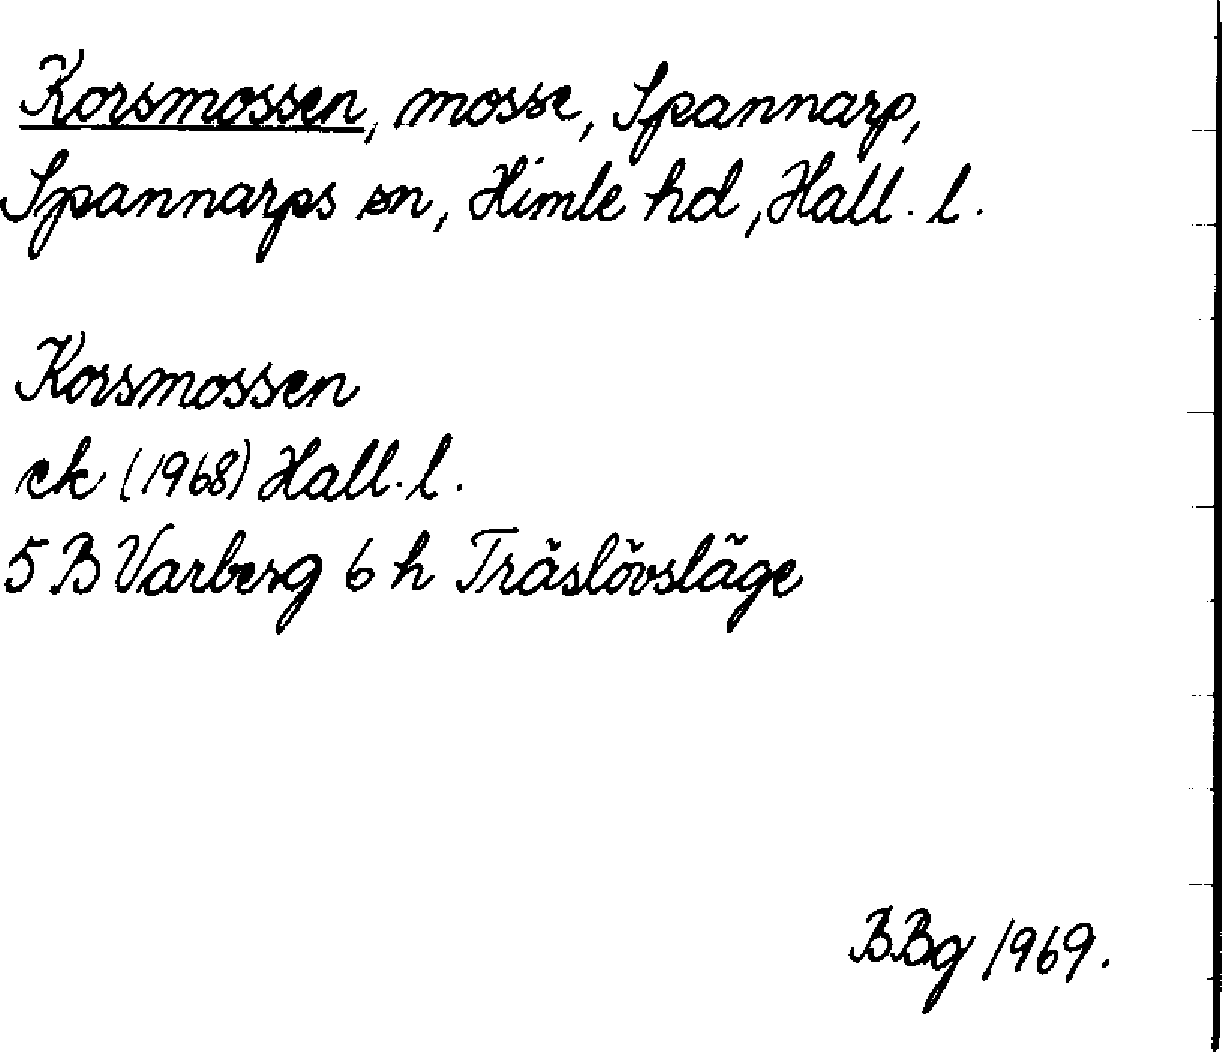 Korsmossen, mosse, Spannarp,
Spannarps sn, Himle hd, Hall. l.
Korsmossen
ek (1968) Hall. l.
5 B Varberg 6 h Träslövsläge
BBg 1969.